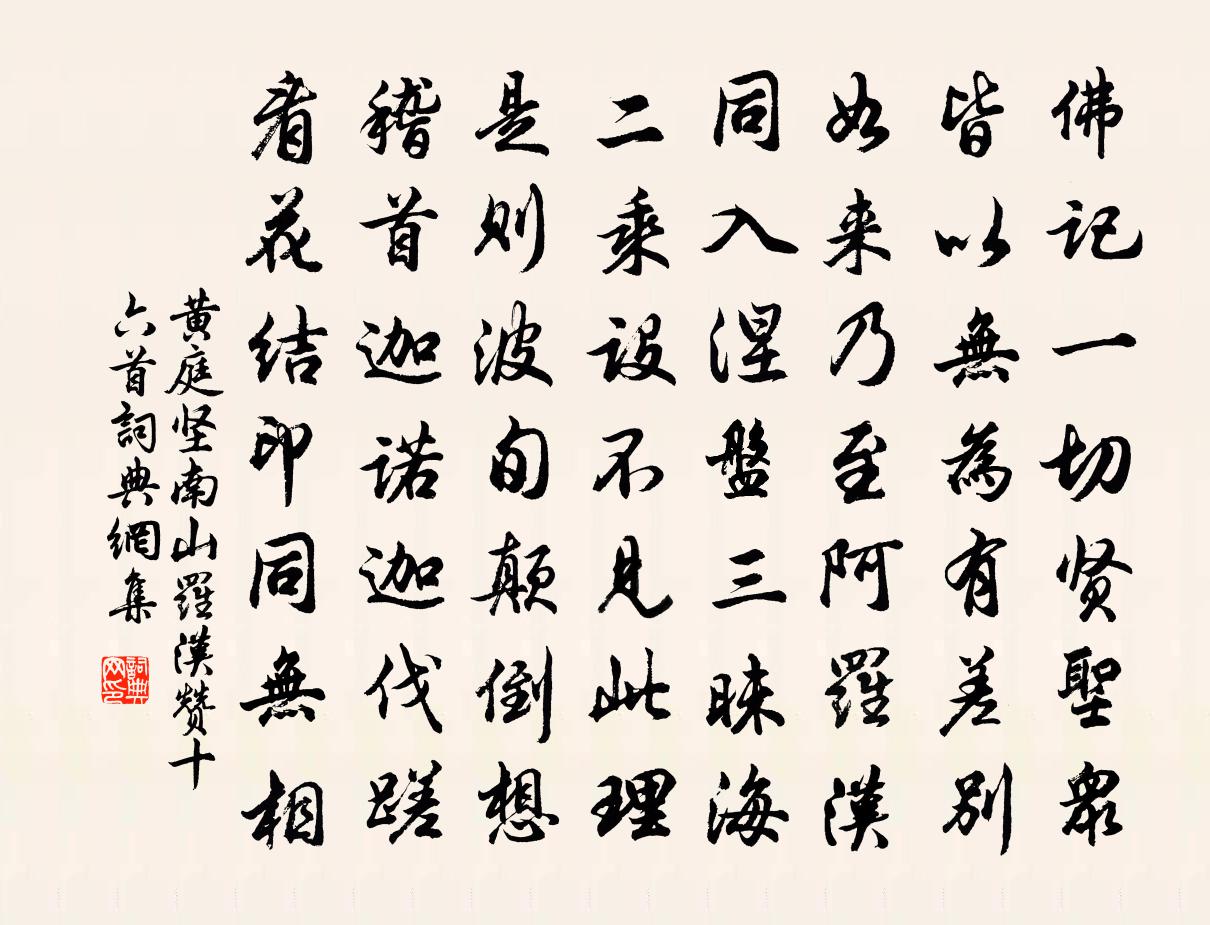 佛记一切贤聖眾
皆以無為有差别
如来乃至阿羅漢
同入涅盤三昧海
二乘设不見此理
是则波旬颠倒想
稽首迦诺迦伐蹉
看花结印同無相
黄庭坚南山羅漢赞十
六首詞典網集
詞典网印